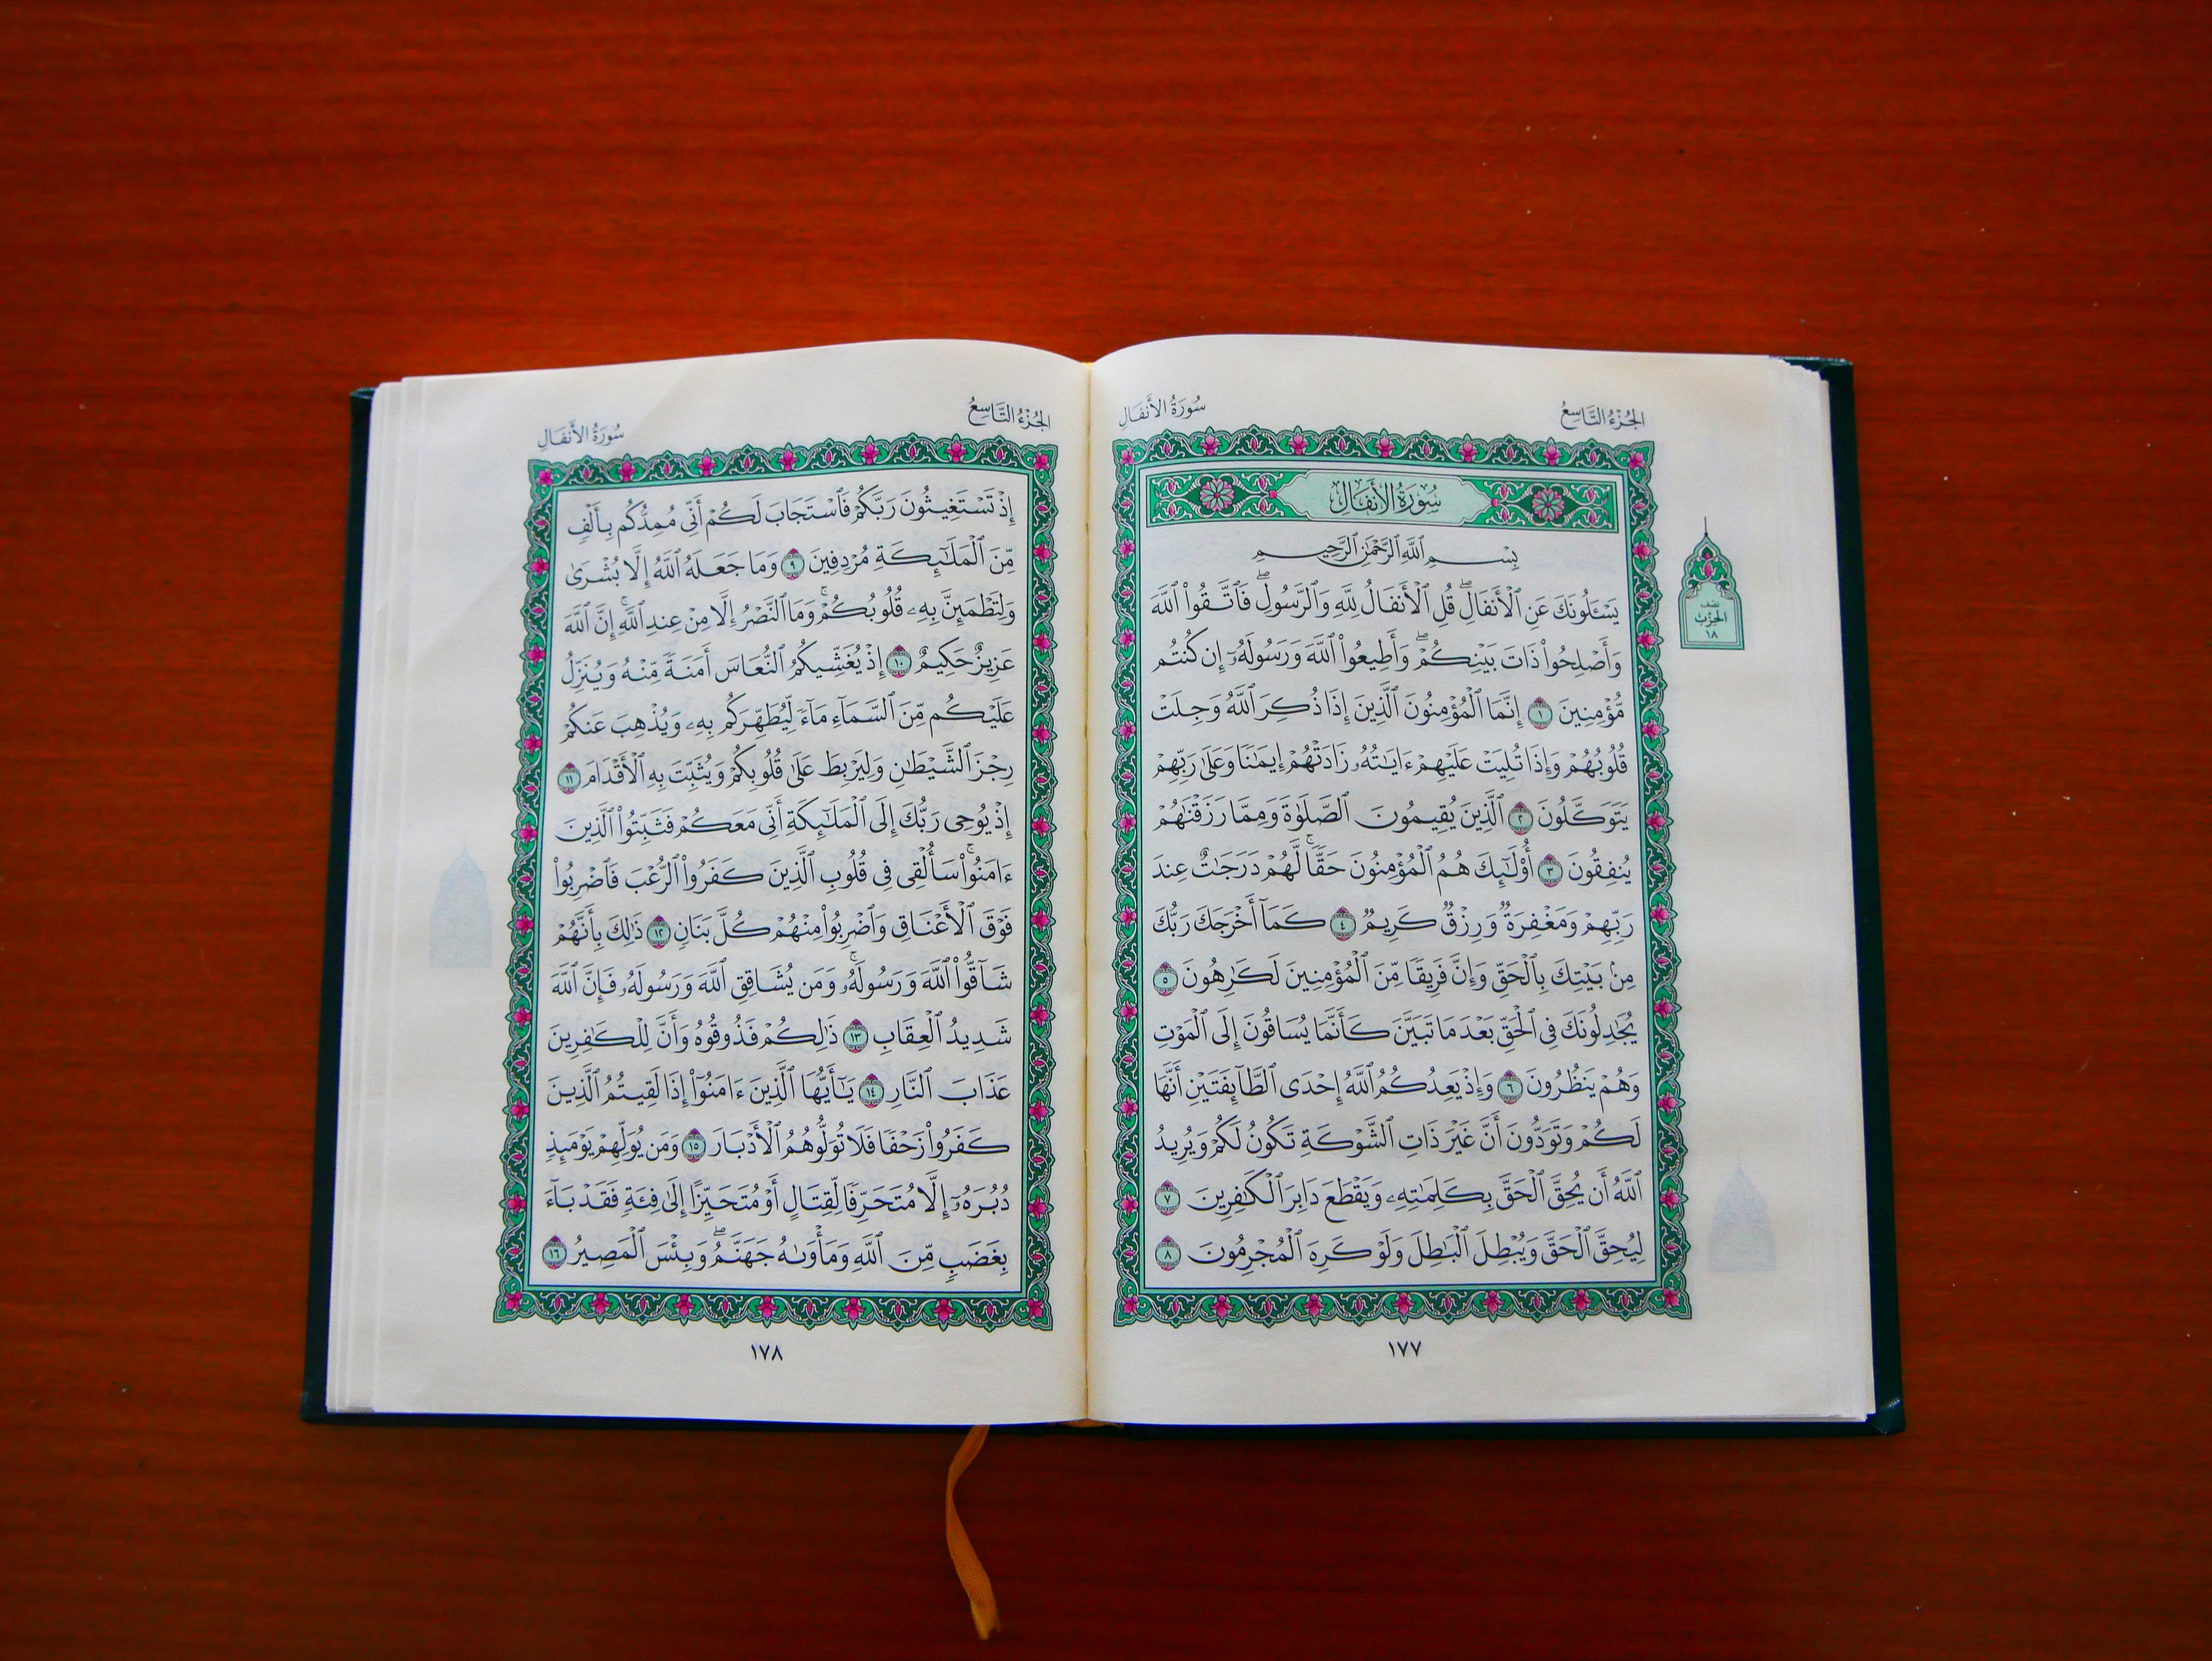 الجُزْءُ التَّاسِعُ
سُورَةُ الأَنفَالِ
سُورَةُ الأَنفَالِ
بِسْمِ ٱللَّهِ ٱلرَّحْمَٰنِ ٱلرَّحِيمِ
يَسْـَٔلُونَكَ عَنِ ٱلْأَنفَالِۖ قُلِ ٱلْأَنفَالُ لِلَّهِ وَٱلرَّسُولِۖ فَٱتَّقُوا۟ ٱللَّهَ
وَأَصْلِحُوا۟ ذَاتَ بَيْنِكُمْۖ وَأَطِيعُوا۟ ٱللَّهَ وَرَسُولَهُۥٓ إِن كُنتُم
مُّؤْمِنِينَ ١ إِنَّمَا ٱلْمُؤْمِنُونَ ٱلَّذِينَ إِذَا ذُكِرَ ٱللَّهُ وَجِلَتْ
قُلُوبُهُمْ وَإِذَا تُلِيَتْ عَلَيْهِمْ ءَايَٰتُهُۥ زَادَتْهُمْ إِيمَٰنًا وَعَلَىٰ رَبِّهِمْ
يَتَوَكَّلُونَ ٢ ٱلَّذِينَ يُقِيمُونَ ٱلصَّلَوٰةَ وَمِمَّا رَزَقْنَٰهُمْ
يُنفِقُونَ ٣ أُو۟لَٰٓئِكَ هُمُ ٱلْمُؤْمِنُونَ حَقًّاۚ لَّهُمْ دَرَجَٰتٌ عِندَ
رَبِّهِمْ وَمَغْفِرَةٌ وَرِزْقٌ كَرِيمٌ ٤ كَمَآ أَخْرَجَكَ رَبُّكَ
مِنۢ بَيْتِكَ بِٱلْحَقِّ وَإِنَّ فَرِيقًا مِّنَ ٱلْمُؤْمِنِينَ لَكَٰرِهُونَ ٥
يُجَٰدِلُونَكَ فِى ٱلْحَقِّ بَعْدَ مَا تَبَيَّنَ كَأَنَّمَا يُسَاقُونَ إِلَى ٱلْمَوْتِ
وَهُمْ يَنظُرُونَ ٦ وَإِذْ يَعِدُكُمُ ٱللَّهُ إِحْدَى ٱلطَّآئِفَتَيْنِ أَنَّهَا
لَكُمْ وَتَوَدُّونَ أَنَّ غَيْرَ ذَاتِ ٱلشَّوْكَةِ تَكُونُ لَكُمْ وَيُرِيدُ
ٱللَّهُ أَن يُحِقَّ ٱلْحَقَّ بِكَلِمَٰتِهِۦ وَيَقْطَعَ دَابِرَ ٱلْكَٰفِرِينَ ٧
لِيُحِقَّ ٱلْحَقَّ وَيُبْطِلَ ٱلْبَٰطِلَ وَلَوْ كَرِهَ ٱلْمُجْرِمُونَ ٨
نصف
الحِزْب
١٨
١٧٧
الجُزْءُ التَّاسِعُ
سُورَةُ الأَنفَالِ
إِذْ تَسْتَغِيثُونَ رَبَّكُمْ فَٱسْتَجَابَ لَكُمْ أَنِّى مُمِدُّكُم بِأَلْفٍ
مِّنَ ٱلْمَلَٰٓئِكَةِ مُرْدِفِينَ ٩ وَمَا جَعَلَهُ ٱللَّهُ إِلَّا بُشْرَىٰ
وَلِتَطْمَئِنَّ بِهِۦ قُلُوبُكُمْۚ وَمَا ٱلنَّصْرُ إِلَّا مِنْ عِندِ ٱللَّهِۚ إِنَّ ٱللَّهَ
عَزِيزٌ حَكِيمٌ ١٠ إِذْ يُغَشِّيكُمُ ٱلنُّعَاسَ أَمَنَةً مِّنْهُ وَيُنَزِّلُ
عَلَيْكُم مِّنَ ٱلسَّمَآءِ مَآءً لِّيُطَهِّرَكُم بِهِۦ وَيُذْهِبَ عَنكُمْ
رِجْزَ ٱلشَّيْطَٰنِ وَلِيَرْبِطَ عَلَىٰ قُلُوبِكُمْ وَيُثَبِّتَ بِهِ ٱلْأَقْدَامَ ١١
إِذْ يُوحِى رَبُّكَ إِلَى ٱلْمَلَٰٓئِكَةِ أَنِّى مَعَكُمْ فَثَبِّتُوا۟ ٱلَّذِينَ
ءَامَنُوا۟ۚ سَأُلْقِى فِى قُلُوبِ ٱلَّذِينَ كَفَرُوا۟ ٱلرُّعْبَ فَٱضْرِبُوا۟
فَوْقَ ٱلْأَعْنَاقِ وَٱضْرِبُوا۟ مِنْهُمْ كُلَّ بَنَانٍ ١٢ ذَٰلِكَ بِأَنَّهُمْ
شَآقُّوا۟ ٱللَّهَ وَرَسُولَهُۥۚ وَمَن يُشَاقِقِ ٱللَّهَ وَرَسُولَهُۥ فَإِنَّ ٱللَّهَ
شَدِيدُ ٱلْعِقَابِ ١٣ ذَٰلِكُمْ فَذُوقُوهُ وَأَنَّ لِلْكَٰفِرِينَ
عَذَابَ ٱلنَّارِ ١٤ يَٰٓأَيُّهَا ٱلَّذِينَ ءَامَنُوٓا۟ إِذَا لَقِيتُمُ ٱلَّذِينَ
كَفَرُوا۟ زَحْفًا فَلَا تُوَلُّوهُمُ ٱلْأَدْبَارَ ١٥ وَمَن يُوَلِّهِمْ يَوْمَئِذٍ
دُبُرَهُۥٓ إِلَّا مُتَحَرِّفًا لِّقِتَالٍ أَوْ مُتَحَيِّزًا إِلَىٰ فِئَةٍ فَقَدْ بَآءَ
بِغَضَبٍ مِّنَ ٱللَّهِ وَمَأْوَىٰهُ جَهَنَّمُۖ وَبِئْسَ ٱلْمَصِيرُ ١٦
١٧٨